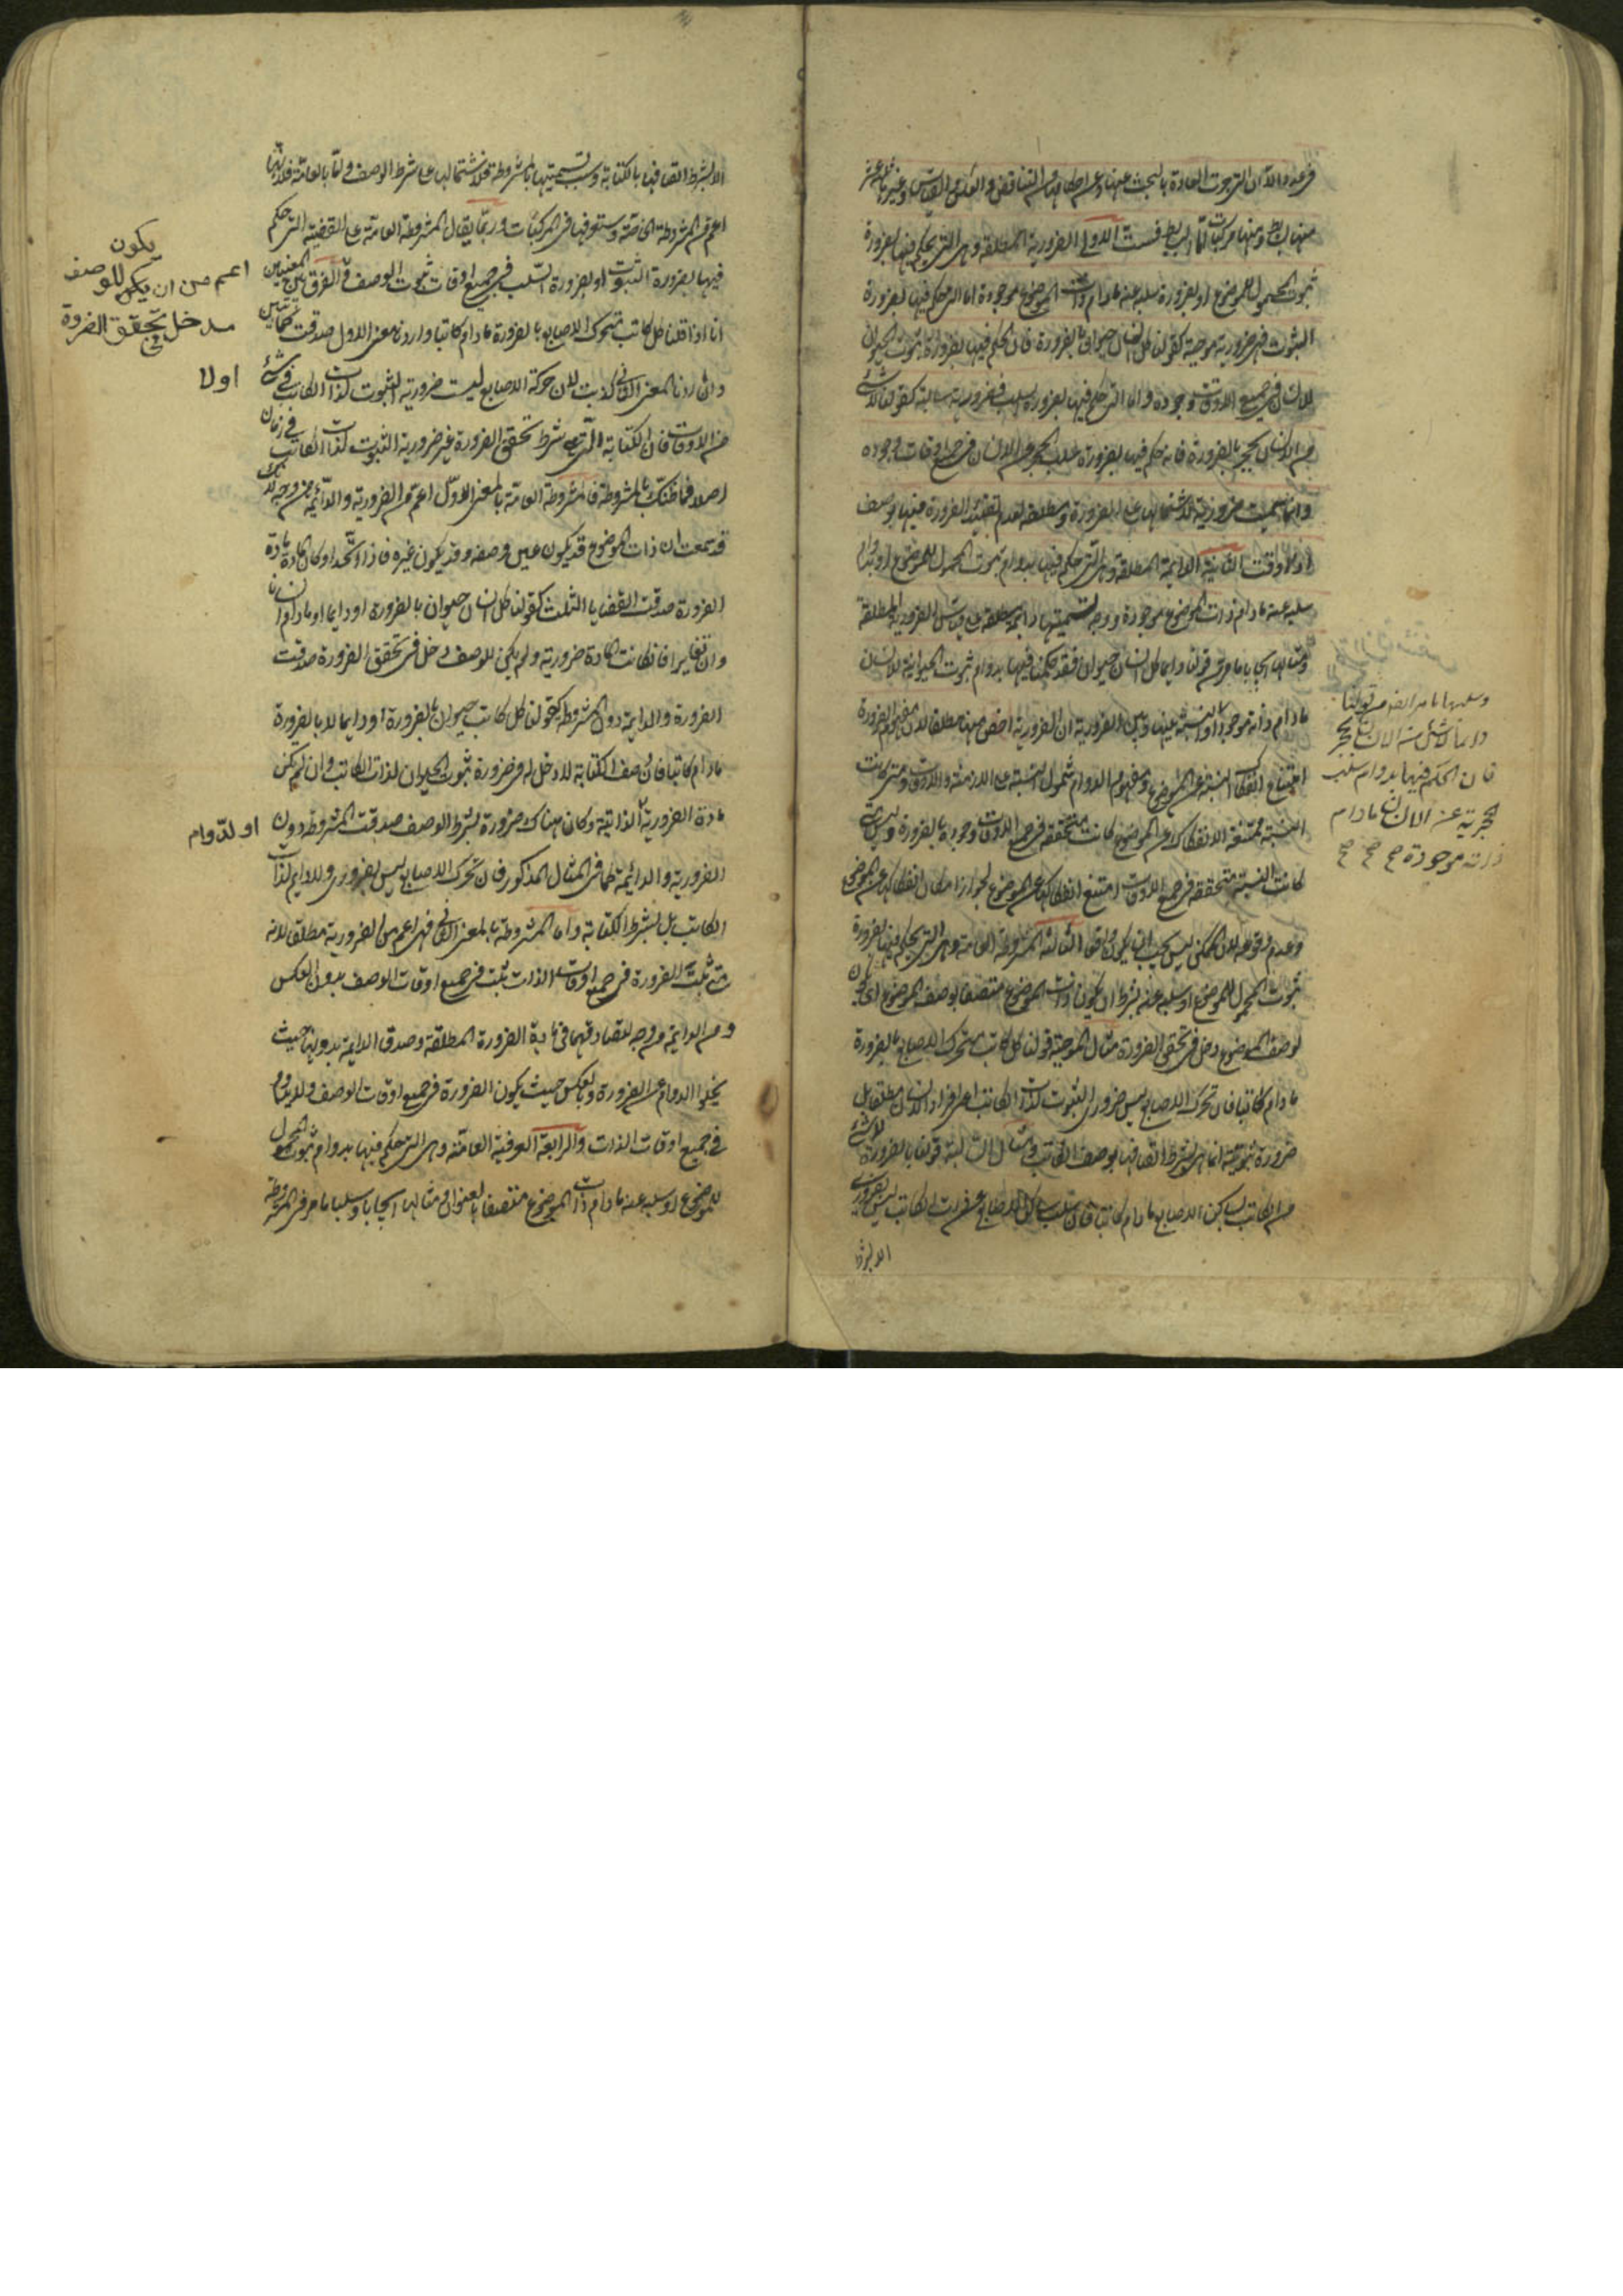 ثبوت المحمول للموضوع او بضرورة سلبه عنه مادام ذات الموضوع موجودة اما التى حكم فيها بضرورة
الثبوت فضرورية موجبة كقولنا كل انسان حيوان بالضرورة فان الحكم فيها بضرورة ثبوت الحيوان
للانسان فى جميع اوقات وجوده واما التى حكم فيها بضرورة السلب فضرورية سالبة كقولنا لا شئ
من الانسان بحجر بالضرورة فانه حكم فيها بضرورة سلب الحجر عن الانسان فى جميع اوقات وجوده
وانما سميت ضرورية لاشتمالها على الضرورة ومطلقة لعدم تقييد الضرورة فيها بوصف
او وقت الثانية الدايمة المطلقة وهى التى حكم فيها بدوام ثبوت المحمول للموضوع او بدوام
سلبه عنه مادام ذات الموضوع موجودة ووجه تسميتها دايمة ومطلقة على قياس الضرورية المطلقة
ومثالها ايجابا ما مر من قولنا دايما كل انسان حيوان فقد حكمنا فيها بدوام ثبوت الحيوانية للانسان
مادام ذاته موجودا والنسبة بينها وبين الضرورية ان الضرورية اخص منها مطلقا لان مفهوم الضرورة
امتناع انفكاك النسبة عن الموضوع ومفهوم الدوام شمول النسبة جميع الازمنة والاوقات ومتى كانت
النسبة ممتنعة الانفكاك عن الموضوع كانت متحققة فى جميع اوقات وجوده بالضرورة وليس متى
كانت النسبة متحققة فى جميع الاوقات امتنع انفكاكها عن الموضوع لجواز امكان انفكاكها عن الموضوع
وعدم وقوعه لان الممكن ليس يجب ان يكون واقعا الثالثة المشروطة العامة وهى التى يحكم فيها بضرورة
ثبوت المحمول للموضوع او سلبه عنه بشرط ان يكون ذات الموضوع متصفا بوصف الموضوع اى يكون
لوصف الموضوع دخل فى تحقق الضرورة مثال الموجبة قولنا كل كاتب متحرك الاصابع بالضرورة
مادام كاتبا فان تحرك الاصابع ليس ضرورى الثبوت لذات الكاتب اعنى افراد الانسان مطلقا بل
ضرورة ثبوته انما هى بشرط اتصافها بوصف الكاتب ومثال السالبة قولنا بالضرورة لا شئ
من الكاتب بساكن الاصابع مادام كاتبا فان سلب ساكن الاصابع عن ذات الكاتب ليس بضرورى
الا بشرط
دائما لا شئ من الانسان بحجر
فان الحكم فيها بدوام سلب
الحجرية عن الانسان مادام
ذاته موجودة صح صح صح
الا بشرط اتصافها بالكتابة وسبب تسميتها بالمشروطة فلاشتمالها على شرط الوصف واما بالعامة فلانها
اعم من المشروطة الخاصة وستعرفها فى المركبات وربما يقال المشروطة العامة على القضية التى حكم
فيها بضرورة الثبوت او بضرورة السلب فى جميع اوقات ثبوت الوصف والفرق بين المعنيين
انا اذا قلنا كل كاتب متحرك الاصابع بالضرورة مادام كاتبا واردنا معنى الاول صدقت كما تبين
وان اردنا المعنى الثانى كذبت لان حركة الاصابع ليست ضرورية الثبوت لذات الكاتب فى شئ
من الاوقات فان الكتابة التى هى شرط تحقق الضرورة غير ضرورية الثبوت لذات الكاتب فى زمان
اصلا فما ظنك بالمشروطة فالمشروطة العامة بالمعنى الاول اعم من الضرورية والدائمة من وجه لانك
قد سمعت ان ذات الموضوع قد يكون عين وصفه وقد يكون غيره فاذا اتحدا وكان المادة مادة
الضرورة صدقت القضايا الثلث كقولنا كل انسان حيوان بالضرورة او دايما او مادام انسانا
وان تغايرا فان كانت المادة ضرورية ولم يكن للوصف دخل فى تحقق الضرورة صدقت
الضرورة والدايمة دون المشروطة كقولنا كل كاتب حيوان بالضرورة او دايما لا بالضرورة
مادام كاتبا فان وصف الكتابة لا دخل له فى ضرورة ثبوت الحيوان لذات الكاتب وان لم يكن
مادة الضرورية الذاتية وكان هناك ضرورة بشرط الوصف صدقت المشروطة دون
الضرورية والدائمة كما فى المثال المذكور فان تحرك الاصابع ليس بضرورى ولا دايم لذات
الكاتب بل بشرط الكتابة واما المشروطة بالمعنى الثانى فهى اعم من الضرورية مطلقا لانه
متى ثبتت الضرورة فى جميع اوقات الذات ثبتت فى جميع اوقات الوصف بدون العكس
ومن الدايمة من وجه لتصادقهما فى مادة الضرورة المطلقة وصدق الدايمة بدونها حيث
يخلوا الدوام عن الضرورة وبالعكس حيث يكون الضرورة فى جميع اوقات الوصف ولا يدوم
فى جميع اوقات الذات والرابعة العرفية العامة وهى التى حكم فيها بدوام ثبوت المحمول
للموضوع او سلبه عنه مادام ذات الموضوع متصفا بالعنوان ومثالها ايجابا وسلبا ما مر فى المشروطة
يكون
اعم من ان يكون للوصف
مدخل تحقق الضروة
اولا
او لدّوام